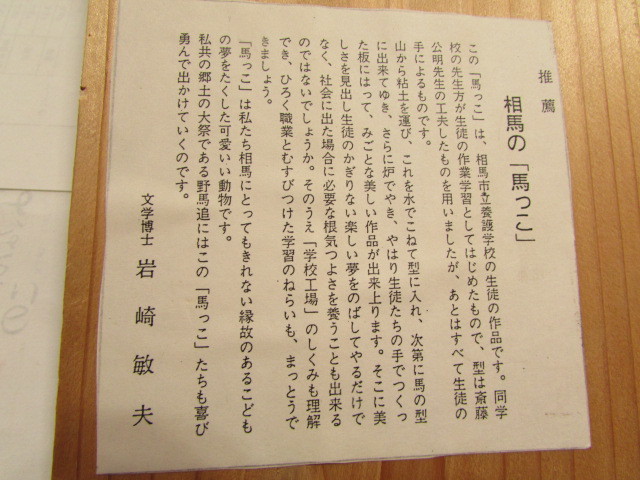 推薦
相馬の「馬っこ」
この「馬っこ」は、相馬市立養護学校の生徒の作品です。同学
校の先生方が生徒の作業学習としてはじめたもので、型は斎藤
公明先生の工夫したものを用いましたが、あとはすべて生徒の
手によるものです。
山から粘土を運び、これを水でこねて型に入れ、次第に馬の型
に出来てゆき、さらに炉でやき、やはり生徒たちの手でつくっ
た板にはって、みごとな美しい作品が出来上ります。そこに美
しさを見出し生徒のかぎりない楽しい夢をのばしてやるだけで
なく、社会に出た場合に必要な根気つよさを養うことも出来る
のではないでしょうか。そのうえ「学校工場」のしくみも理解
でき、ひろく職業とむすびつけた学習のねらいも、まっとうで
きましょう。
「馬っこ」は私たち相馬にとってもきれない縁故のあるこども
の夢をたくした可愛いい動物です。
私共の郷土の大祭である野馬追にはこの「馬っこ」たちも喜び
勇んで出かけていくのです。
文学博士 岩崎敏夫